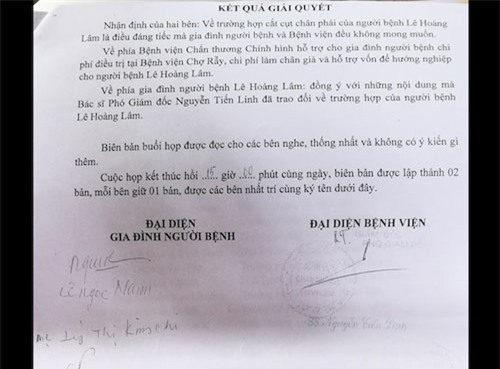 KẾT QUẢ GIẢI QUYẾT
Nhận định của hai bên: Về trường hợp cắt cụt chân phải của người bệnh Lê Hoàng
Lâm là điều đáng tiếc mà gia đình người bệnh và Bệnh viện đều không mong muốn.
Về phía Bệnh viện Chấn thương Chỉnh hình hỗ trợ cho gia đình người bệnh chi
phí điều trị tại Bệnh viện Chợ Rẫy, chi phí làm chân giả và hỗ trợ vốn để hướng nghiệp
cho người bệnh Lê Hoàng Lâm.
Về phía gia đình người bệnh Lê Hoàng Lâm: đồng ý với những nội dung mà
Bác sĩ Phó Giám đốc Nguyễn Tiến Linh đã trao đổi về trường hợp của người bệnh
Lê Hoàng Lâm.
Biên bản buổi họp được đọc cho các bên nghe, thống nhất và không có ý kiến gì
thêm.
Cuộc họp kết thúc hồi 15 giờ 00 phút cùng ngày, biên bản được lập thành 02
bản, mỗi bên giữ 01 bản, được các bên nhất trí cùng ký tên dưới đây.
ĐẠI DIỆN
GIA ĐÌNH NGƯỜI BỆNH
ĐẠI DIỆN BỆNH VIỆN
Lê Ngọc Nam
mẹ Thị Kim Chi
BS. Nguyễn Tiến Linh